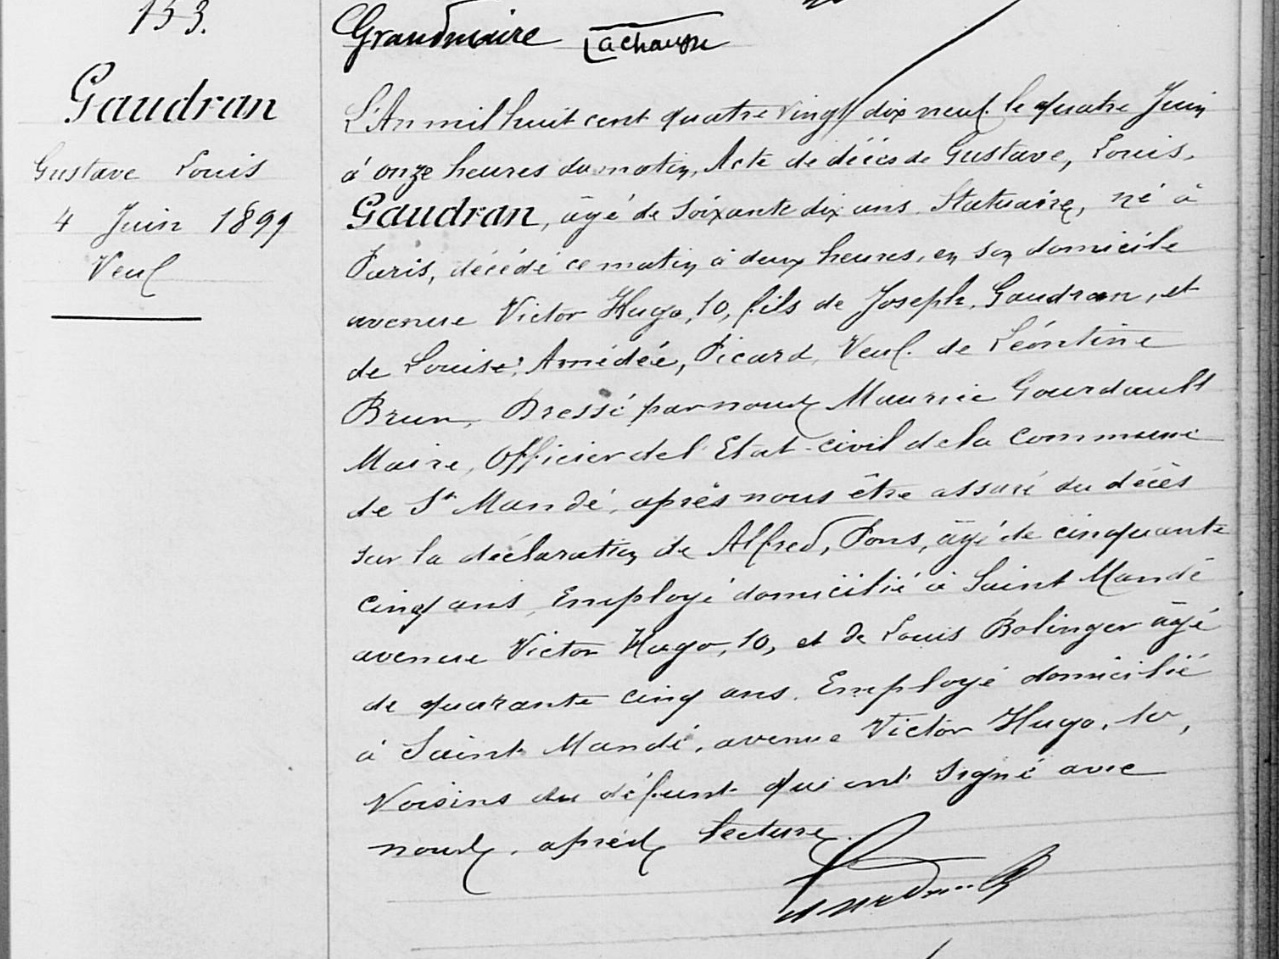 153.
Grandmaire Lachausse
Gaudran
Gustave Louis
4 Juin 1899
Veuf
L'An mil huit cent quatre vingt dix neuf le quatre Juin
à onze heures du matin, Acte de décès de Gustave, Louis,
Gaudran, âgé de soixante dix ans, Statuaire, né à
Paris, décédé ce matin à deux heures, en son domicile
avenue Victor Hugo, 10, fils de Joseph, Gaudran, et
de Louise, Amédée, Picard, Veuf de Léontine
Brun, Dressé par nous Maurice Gourdault
Maire, Officier de l'Etat-civil de la Commune
de St Mandé, après nous être assuré du décès
sur la déclaration de Alfred, Pons, âgé de cinquante
cinq ans, Employé domicilié à Saint Mandé
avenue Victor Hugo, 10, et de Louis Bolinger âgé
de quarante cinq ans, Employé domicilié
à Saint Mandé, avenue Victor Hugo, 10,
Voisins du défunt qui ont signé avec
nous, après lecture.